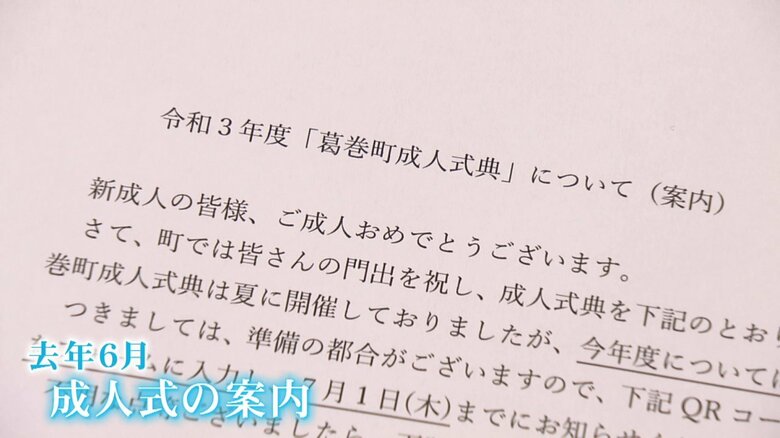 令和３年度「葛巻町成人式典」について（案内）
新成人の皆様、ご成人おめでとうございます。
さて、町では皆さんの門出を祝し、成人式典を下記のとおり
巻町成人式典は夏に開催しておりましたが、今年度については
つきましては、準備の都合がございますので、下記QRコー
ムに入力し、7月1日(木)までにお知らせ
去年6月
成人式の案内